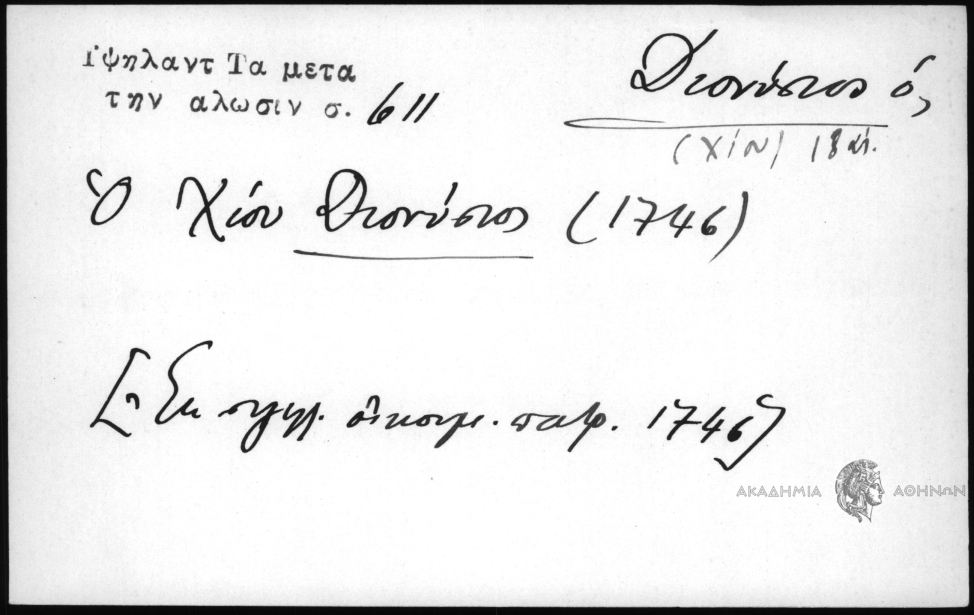 Ὑψηλαντ Τα μετα
την αλωσιν σ. 611
Διονύσιος ὁ,
(Χίου) 18 αἰ.
Ὁ Χίου Διονύσιος (1746)
[Ἐκ σιγιλ. οἰκουμ. πατρ. 1746]
ΑΚΑΔΗΜΙΑ ΑΘΗΝΩΝ